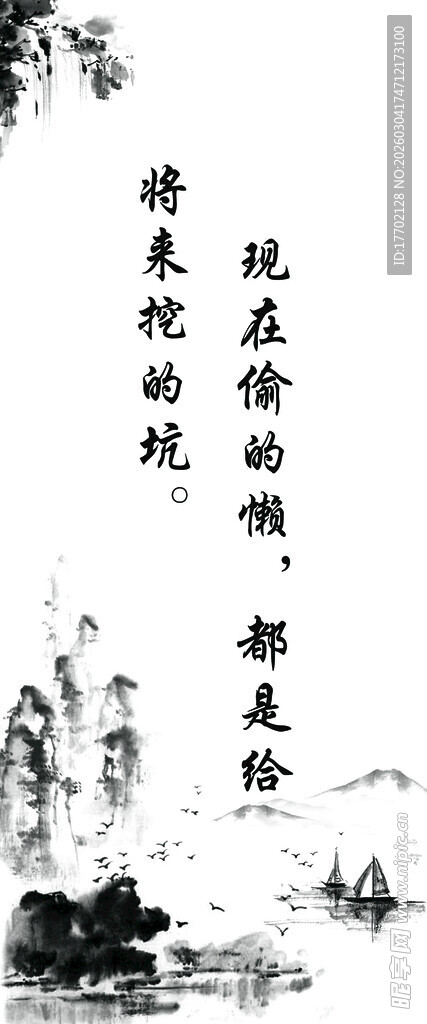 现在偷的懒，都是给
将来挖的坑。
ID:17702128 NO:20260304174712173100
昵享网 www.nipic.cn